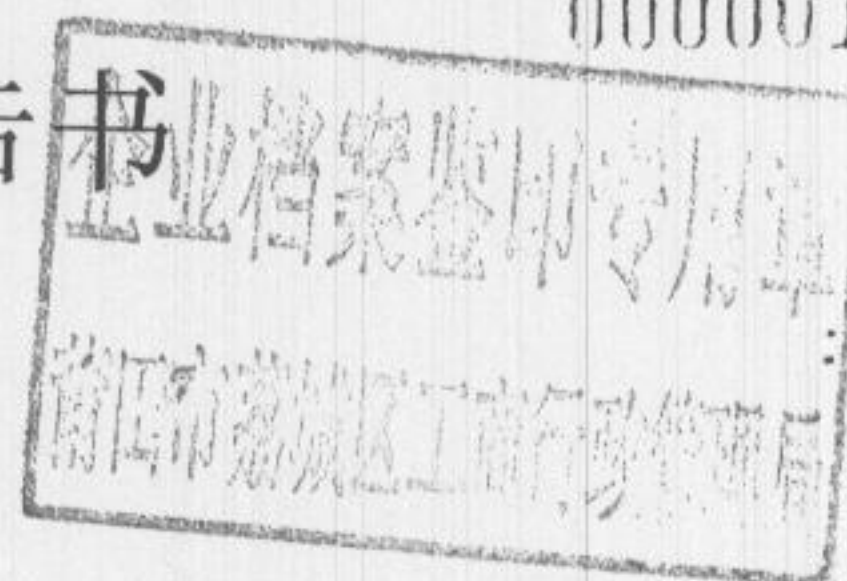 000001
告书
企业档案查印专用章
莆田市荔城区工商行政管理局